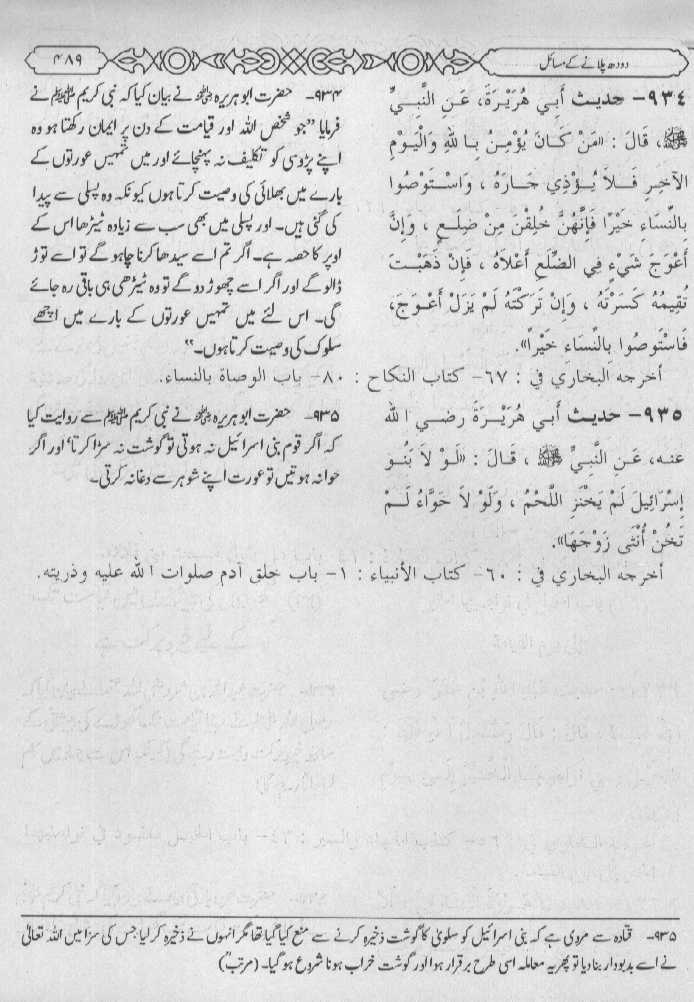 دودھ پلانے کے مسائل
۴۸۹
٩٣٤- حديث أَبِي هُرَيْرَةَ، عَنِ النَّبِيِّ
ﷺ، قَالَ : «مَنْ كَانَ يُؤْمِنُ بِاللهِ وَالْيَوْمِ
الآخِرِ فَلاَ يُؤْذِي جَارَهُ ، وَاسْتَوْصُوا
بِالنِّسَاءِ خَيْرًا فَإِنَّهُنَّ خُلِقْنَ مِنْ ضِلَعٍ ، وَإِنَّ
أَعْوَجَ شَيْءٍ فِي الضِّلَعِ أَعْلاَهُ ، فَإِنْ ذَهَبْتَ
تُقِيمُهُ كَسَرْتَهُ ، وَإِنْ تَرَكْتَهُ لَمْ يَزَلْ أَعْوَجَ،
فَاسْتَوصُوا بِالنِّسَاءِ خَيْراً».
۹۳۴- حضرت ابو ہریرہ ؓ نے بیان کیا کہ نبی کریم ﷺ نے
فرمایا ”جو شخص اللہ اور قیامت کے دن پر ایمان رکھتا ہو وہ
اپنے پڑوسی کو تکلیف نہ پہنچائے اور میں تمہیں عورتوں کے
بارے میں بھلائی کی وصیت کرتا ہوں کیونکہ وہ پسلی سے پیدا
کی گئی ہیں۔ اور پسلی میں بھی سب سے زیادہ ٹیڑھا اس کے
اوپر کا حصہ ہے۔ اگر تم اسے سیدھا کرنا چاہو گے تو اسے توڑ
ڈالو گے اور اگر اسے چھوڑ دو گے تو وہ ٹیڑھی ہی باقی رہ جائے
گی۔ اس لئے میں تمہیں عورتوں کے بارے میں اچھے
سلوک کی وصیت کرتا ہوں۔“
أخرجه البخاري في : ٦٧- كتاب النكاح : ٨٠- باب الوصاة بالنساء.
٩٣٥- حديث أَبِي هُرَيْرَةَ رضي الله
عنه، عَنِ النَّبِيِّ ﷺ ، قَالَ : «لَوْ لاَ بَنُو
إِسْرَائِيلَ لَمْ يَخْنَزِ اللَّحْمُ ، وَلَوْ لاَ حَوَّاءُ لَمْ
تَخُنْ أُنْثَى زَوْجَهَا».
۹۳۵- حضرت ابو ہریرہ ؓ نے نبی کریم ﷺ سے روایت کیا
کہ اگر قوم بنی اسرائیل نہ ہوتی تو گوشت نہ سڑا کرتا‘ اور اگر
حوا نہ ہوتیں تو عورت اپنے شوہر سے دغا نہ کرتی۔
أخرجه البخاري في : ٦٠- كتاب الأنبياء : ١- باب خلق آدم صلوات الله عليه وذريته.
۹۳۵- قتادہ سے مروی ہے کہ بنی اسرائیل کو سلویٰ کا گوشت ذخیرہ کرنے سے منع کیا گیا تھا مگر انہوں نے ذخیرہ کر لیا جس کی سزا میں اللہ تعالیٰ
نے اسے بدبودار بنا دیا تو پھر یہ معاملہ اسی طرح برقرار ہوا اور گوشت خراب ہونا شروع ہو گیا۔ (مرتبؒ)